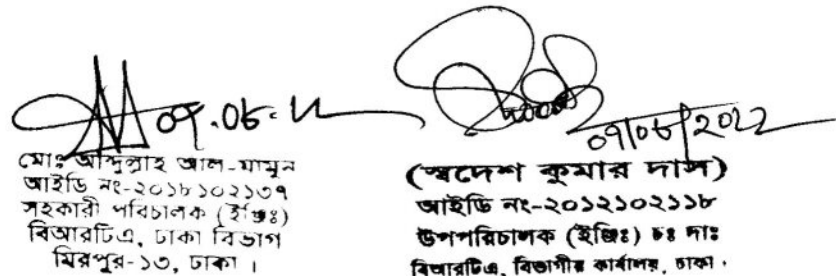 ০৭.০৮.
মোঃ আব্দুল্লাহ আল-মামুন
আইডি নং-২০১৮১০২১৩৭
সহকারী পরিচালক (ইঞ্জিঃ)
বিআরটিএ, ঢাকা বিভাগ
মিরপুর-১৩, ঢাকা ।
০৭/০৮/2022
(স্বদেশ কুমার দাস)
আইডি নং-২০১২১০২১১৮
উপপরিচালক (ইঞ্জিঃ) চঃ দাঃ
বিআরটিএ, বিভাগীয় কার্যালয়, ঢাকা ।